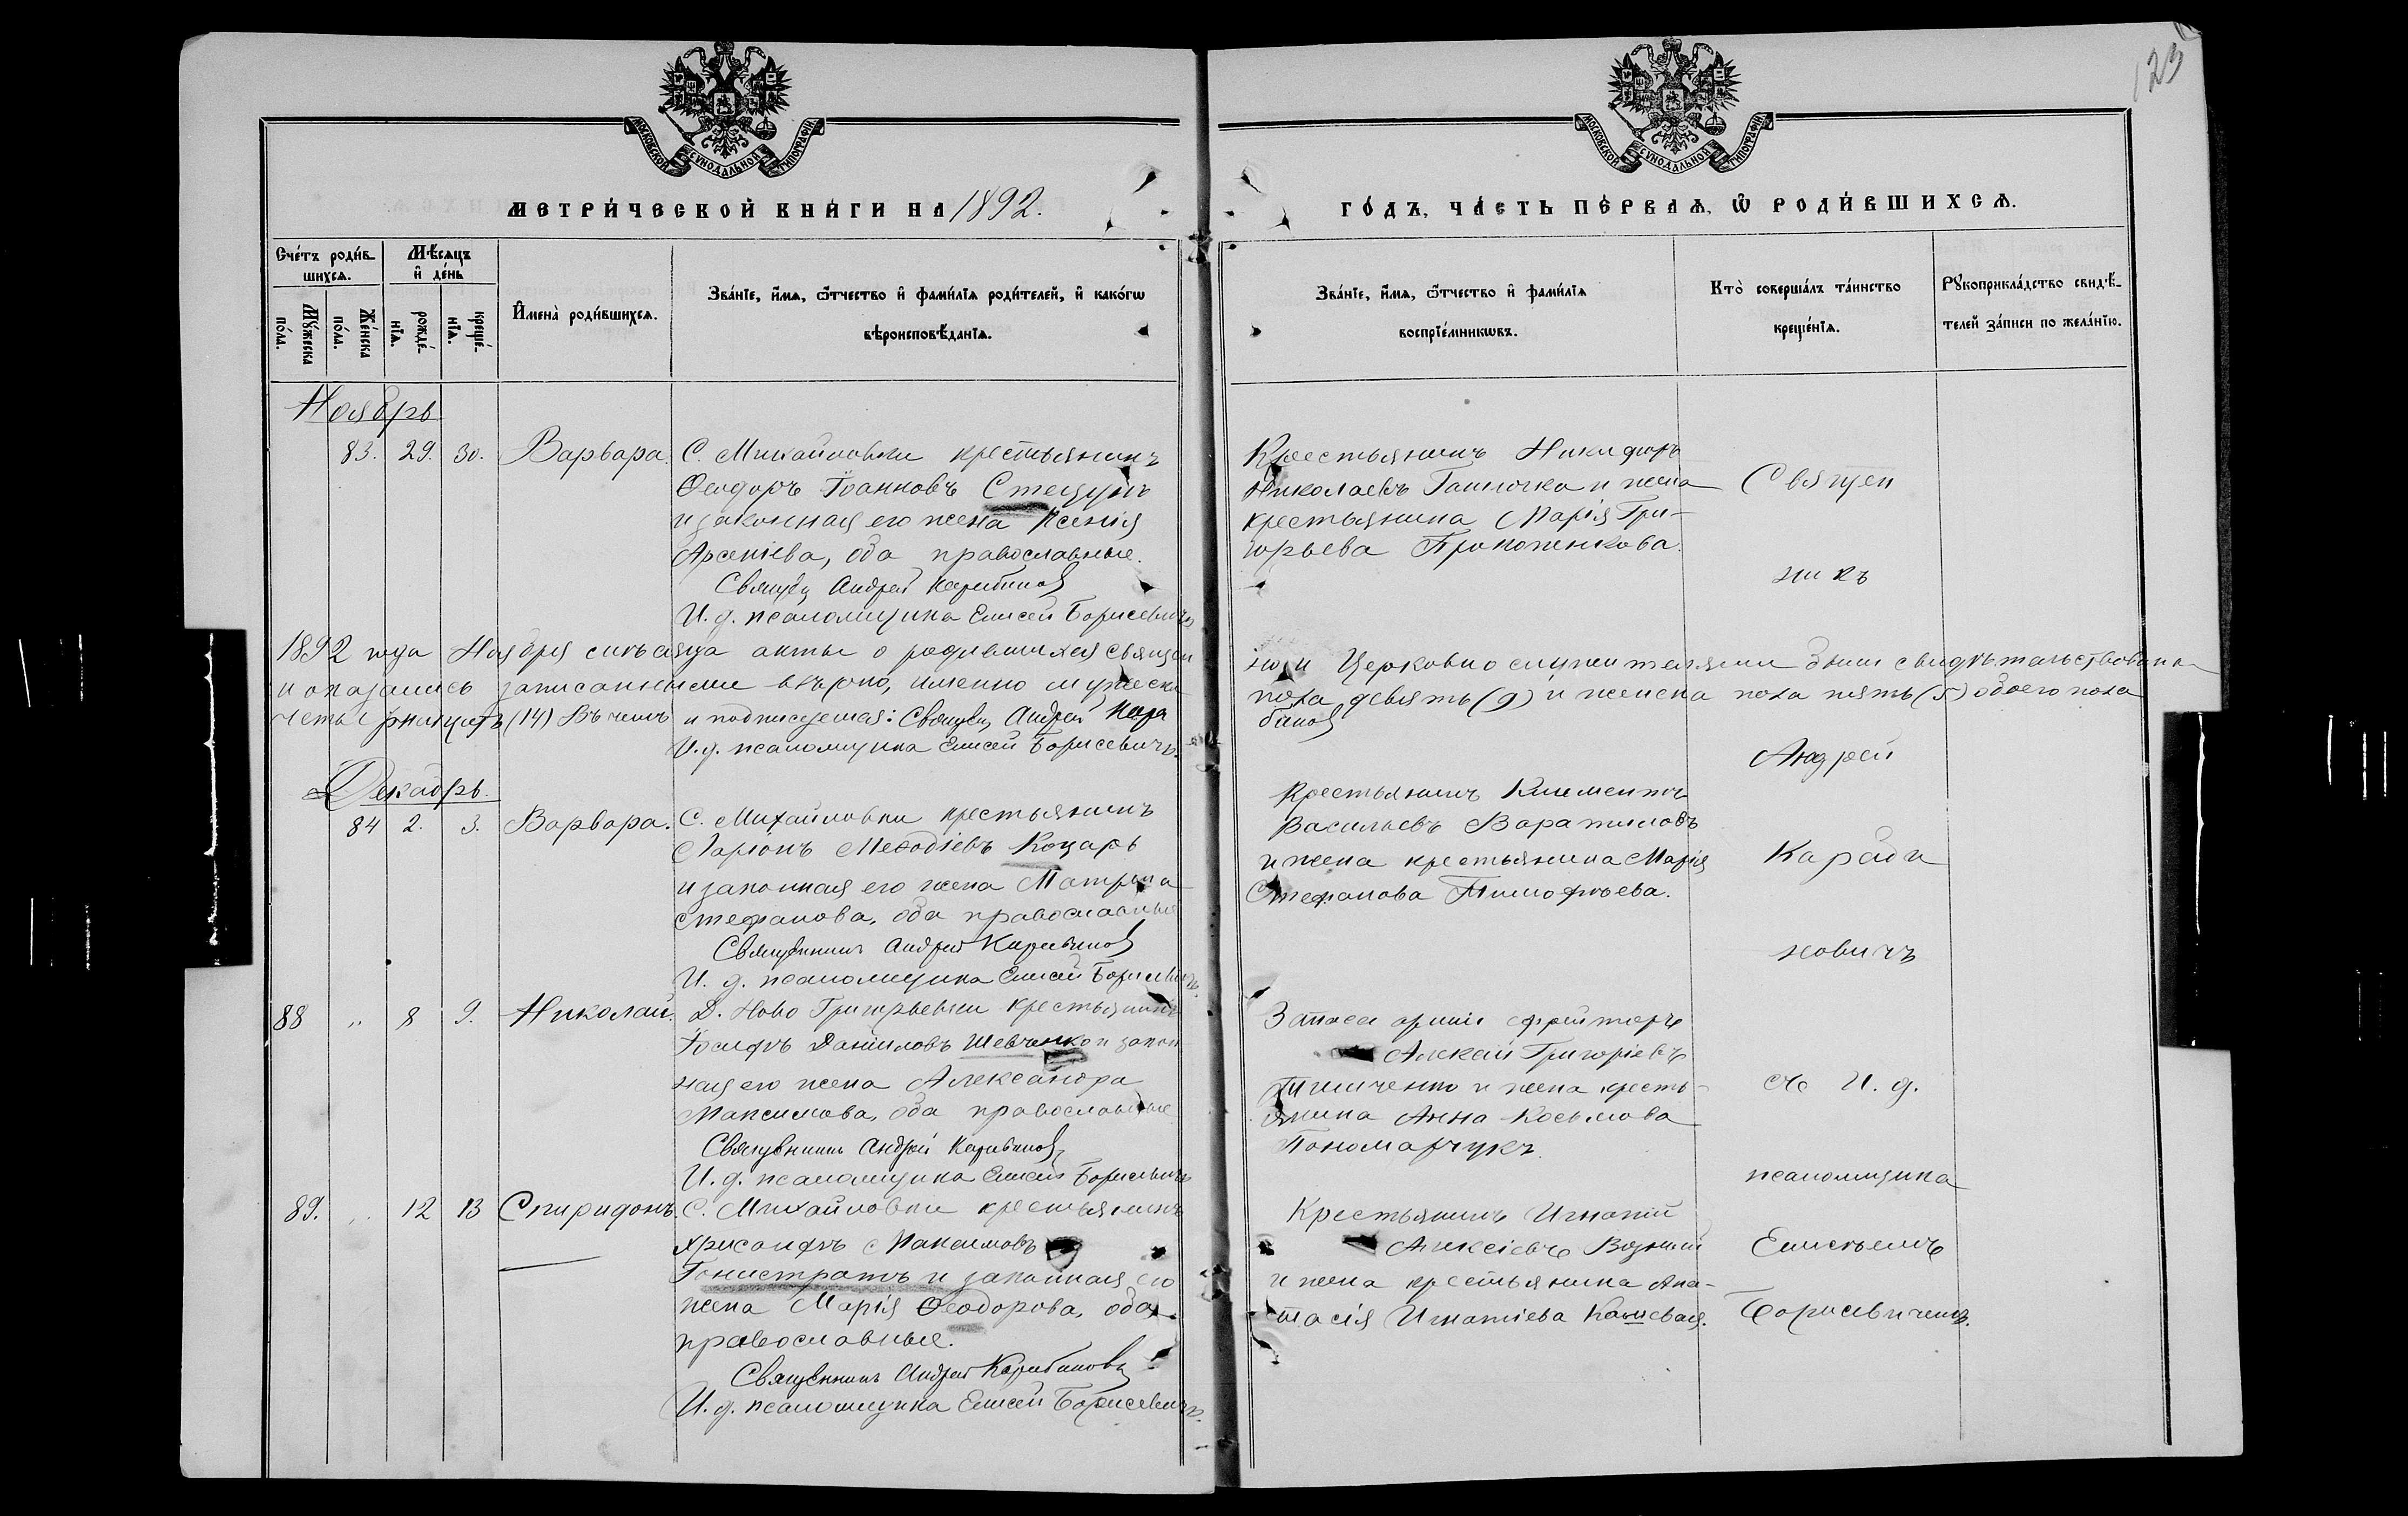 123
МОСКОВСКОЙ СУНОДАЛЬНОЙ ТИПОГРАФІИ
МОСКОВСКОЙ СУНОДАЛЬНОЙ ТИПОГРАФІИ
МЕТРИ́ЧЕСКОЙ КНИ́ГИ НА 1892.
ГО́ДЪ, ЧА́СТЬ ПЕ́РВАѦ, Ѡ҆ РОДИ́ВШИХСѦ.
Сче́тъ роди́в-
шихсѧ.
Мꙋ́жеска
по́ла.
Же́нска
по́ла.
Мѣ́сѧцъ
и҆ де́нь
рожде́-
нїѧ.
креще́-
нїѧ.
И҆мена̀ роди́вшихсѧ.
Зва́нїе, и҆́мѧ, ѻ҆́тчество и҆ фами́лїѧ роди́телей, и҆ како́гѡ
вѣроисповѣ́данїѧ.
Зва́нїе, и҆́мѧ, ѻ҆́тчество и҆ фами́лїѧ
воспрїе́мникѡвъ.
Кто̀ соверша́лъ та́инство
креще́нїѧ.
Рꙋкоприкла́дство свидѣ́-
телей за́писи по жела́нїю.
Ноябрь
83. 29. 30. Варвара. С. Михайловки крестьянинъ
Ѳеодоръ Іоанновъ Стецунъ
и законная его жена Ксенія
Арсеніева, оба православные.
Священ Андрей Карабинов
И. д. псаломщика Елисей Борисевичъ
Крестьянинъ Никифоръ
Николаевъ и жена
крестьянина Марія Гри-
горьева
1892 года Ноября сего мѣсяца акты о родившихся священ
но и Церковно служителями были свидѣтельствованы
и оказались записанными вѣрно, именно мужеска
пола девять (9) и женска пола пять (5) обоего пола
четырнадцать (14) Въ чемъ и подписуемся: Священ Андрей Кара
бинов
И. д. псаломщика Елисей Борисевичъ.
Декабрь.
84 2. 3. Варвара. С. Михайловки крестьянинъ
Ларіонъ Меѳодіевъ Коцарь
и законная его жена Матрона
Стефанова, оба православные
Священникъ Андрей Карабинов
И. д. псаломщика Елисей Борисевичъ.
Крестьянинъ Климентъ
Васильевъ
и жена крестьянина Марія
Стефанова Тимофѣева.
88 " 8 9. Николай. Д. Ново Григорьевки крестьянинъ
Іосифъ Даніиловъ Шевченко и закон
ная его жена Александра
Максимова, оба православные
Священникъ Андрей Карабинов
И. д. псаломщика Елисей Борисевичъ
Запаса арміи ефрейторъ
Алексѣй Григоріевъ
Тимченко и жена кресть-
янина Анна Косьмова
Пономарчукъ.
89. " 12 13 Спиридонъ. С. Михайловки крестьянинъ
Хрисанфъ Максимовъ
и законная его
жена Марія Ѳеодорова, оба
православные.
Священникъ Андрей Карабиновъ
И. д. псаломщика Елисей Борисевичъ.
Крестьянинъ Игнатій
Алексіевъ Возный
и жена крестьянина Ана-
стасія Игнатіева
Священ
никъ
Андрей
Караби
новичъ
съ И. д.
псаломщика
Елисѣемъ
Борисевичемъ.